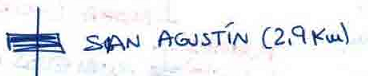 SAN AGUSTÍN (2,9 Km)